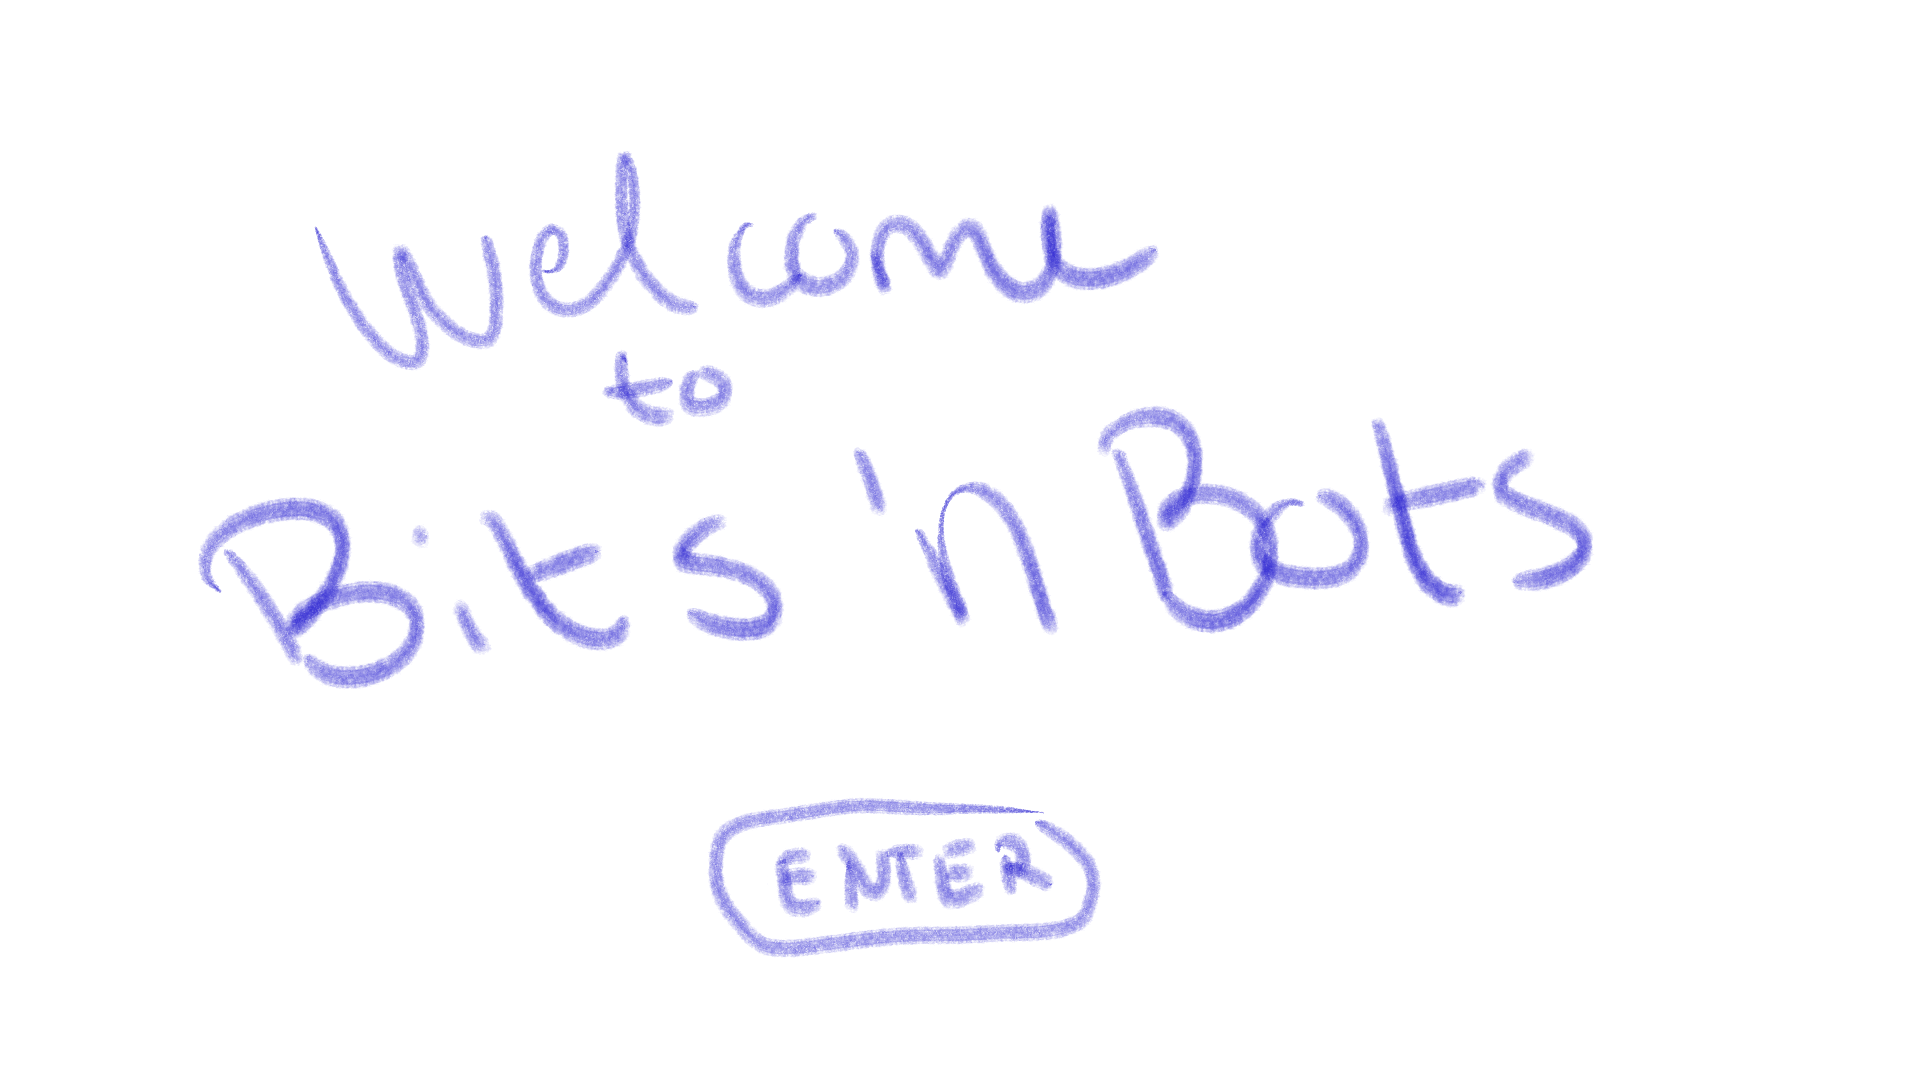 Welcome
to
Bits 'n Bots
ENTER